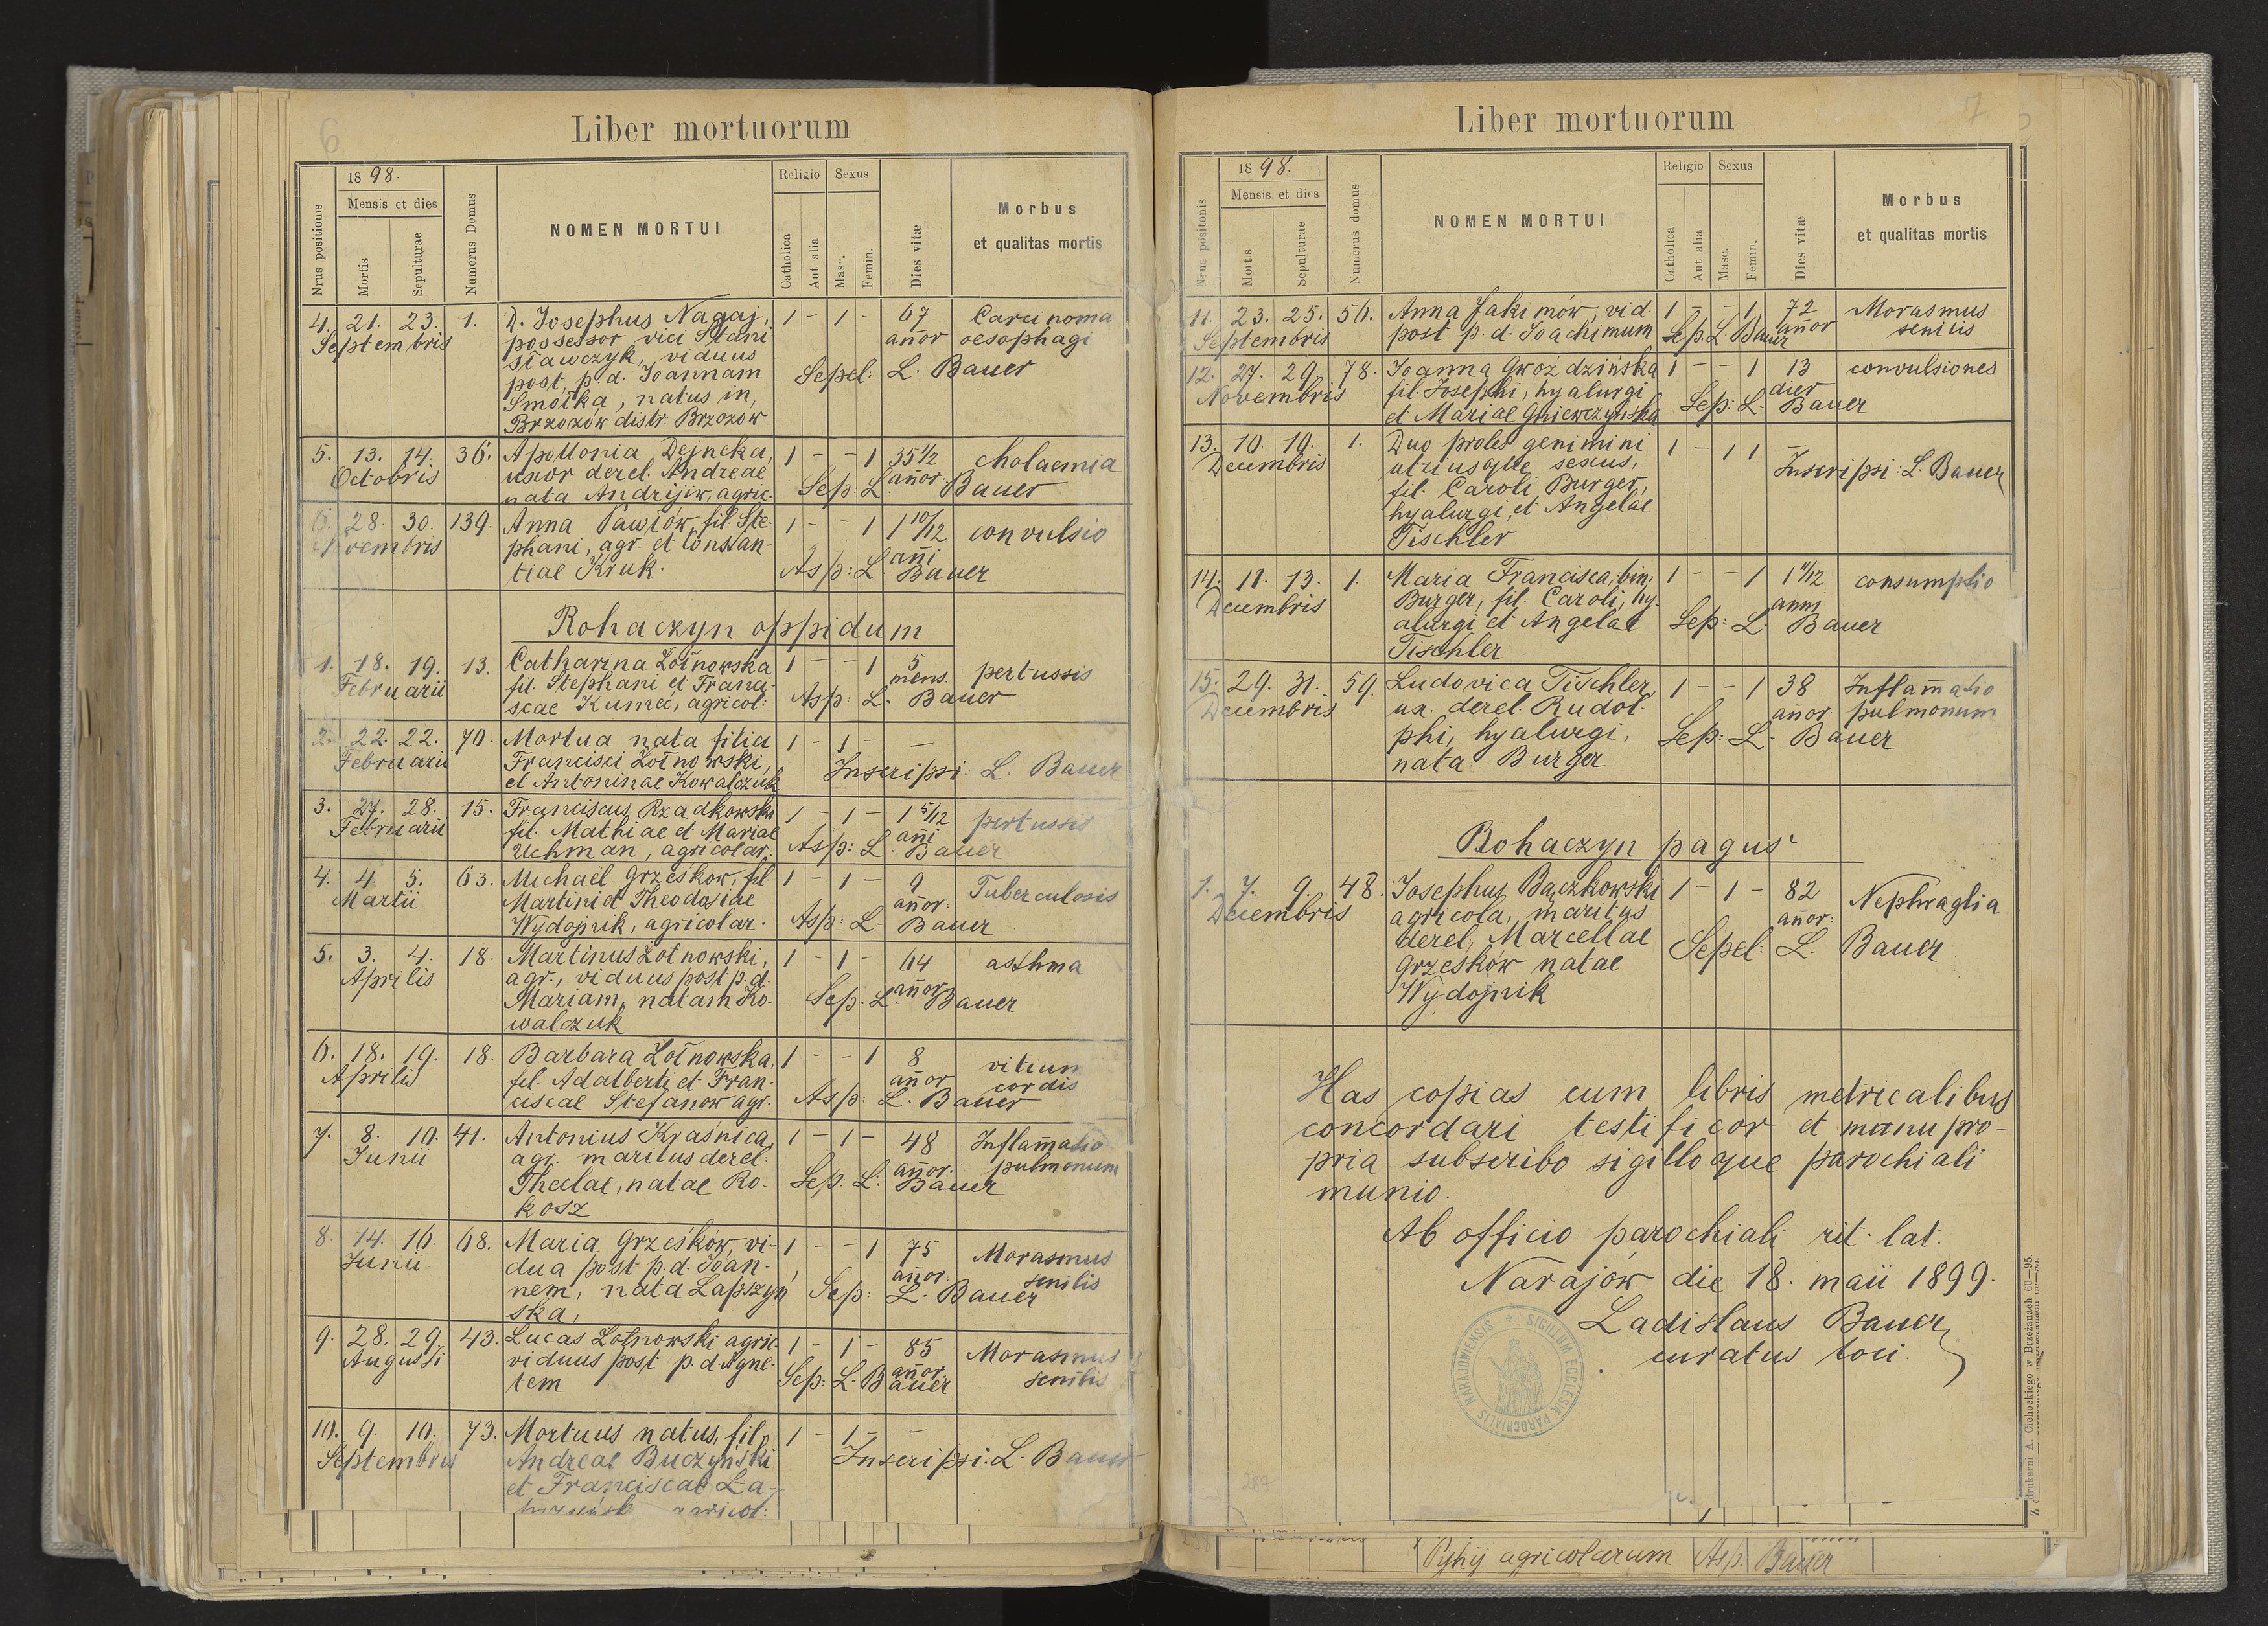 6
Liber mortuorum
1898.
Mensis et dies
Nrus positionis
Mortis
Sepulturae
Numerus Domus
NOMEN MORTUI
Religio
Sexus
Catholica
Aut alia
Masc.
Femin.
Dies vitæ
Morbus
et qualitas mortis
4. 21. 23. 1. D. Josephus Nagaj, 1 - 1 - 67 Carcinoma
Septembris possessor vici Stani- añor oesophagi
sławczyk, viduus
post p. d. Joannam Sepel: L. Bauer
Smólka, natus in,
Brzozów distr. Brzozow
5. 13. 14. 36. Apollonia Dejneka, 1 - - 1 35 1/2 cholaemia
Octobris uxor derel. Andreae añor.
nata Andrijiw, agric. Sep: L. Bauer
6. 28. 30. 139. Anna Pawłów, fil. Ste- 1 - - 1 1 10/12 convulsio
Novembris phani, agr. et Constan- añi
tiae Kruk. Asp: L. Bauer
Rohaczyn oppidum
1. 18. 19. 13. Catharina Żołnowska 1 - - 1 5 pertussis
Februarii fil. Stephani et Franci- mens.
scae Kumeć, agricol: Asp: L. Bauer
2. 22. 22. 70. Mortua nata filia 1 - 1 - —
Februarii Francisci Żołnowski,
et Antoninae Kowalczuk Inscripsi: L. Bauer
3. 27. 28. 15. Franciscus Rzadkowski 1 - 1 - 1 5/12 pertussis
Februarii fil. Mathiae et Mariae añi
Uchman, agricolar: Asp: L. Bauer
4. 4. 5. 63. Michaël Grześkow, fil. 1 - 1 - 9 Tuberculosis
Martii Martini et Theodosiae añor:
Wydojnik, agricolar. Asp: L. Bauer
5. 3. 4. 18. Martinus Żołnowski, 1 - 1 - 64 asthma
Aprilis agr., viduus post p. d. añor
Mariam, natam Ko- Sep. L. Bauer
walczuk
6. 18. 19. 18. Barbara Żołnowska, 1 - - 1 8 vitium
Aprilis fil. Adalberti et Fran- añor cordis
ciscae Stefanow agr. Asp: L. Bauer
7. 8. 10. 41. Antonius Kraśnica, 1 - 1 - 48 Inflam̄atio
Junii agr. maritus derel: añor: pulmonum
Theclae, natae Ro- Sep. L. Bauer
kosz
8. 14. 16. 68. Maria Grześków, vi- 1 - - 1 75 Marasmus
Junii dua post p. d. Joan- añor: senilis
nem, nata Łapszyń Sep: L. Bauer
ska,
9. 28. 29. 43. Lucas Żołnowski agric. 1 - 1 - 85 Marasmus
Augusti viduus post p. d. Agne- añor: senilis
tem Sep: L. Bauer
10. 9. 10. 73. Mortuus natus, fil. 1 - 1 - —
Septembris Andreae Buczyński Inscripsi: L. Bauer
et Franciscae Ła-
agricol:
7
Liber mortuorum
1898.
Mensis et dies
Nrus positonis
Mortis
Sepulturae
Numerus domus
NOMEN MORTUI
Religio
Sexus
Catholica
Aut alia
Masc.
Femin.
Dies vitæ
Morbus
et qualitas mortis
11. 23. 25. 56. Anna Jakimów, vid. 1 - - 1 72 Marasmus
Septembris post p. d. Joachimum Sep. L. Bauer añor senilis
12. 27. 29. 78. Joanna Gwoździńska 1 - - 1 13 convulsiones
Novembris fil. Josephi, hyalurgi dier
et Mariae Gniewczyńska Sep: L. Bauer
13. 10. 10. 1. Duo proles genimini 1 - 1 1 —
Decembris utriusque sexus, Inscripsi: L. Bauer
fil. Caroli Burger,
hyalurgi, et Angelae
Tischler
14. 11. 13. 1. Maria Francisca, bin: 1 - - 1 1 11/12 consumptio
Decembris Burger, fil. Caroli, hy- anni
alurgi et Angelae Sep: L. Bauer
Tischler
15. 29. 31. 59. Ludovica Tischler, 1 - - 1 38 Inflam̄atio
Decembris ux. derel. Rudol- añor: pulmonum
phi, hyalurgi, Sep: L. Bauer
nata Burger
Rohaczyn pagus
1. 7. 9. 48. Josephus Bączkowski 1 - 1 - 82 Nephraglia
Decembris agricola, maritus añor:
derel. Marcellae Sepel: L. Bauer
Grzesków natae
Wydojnik
Has copias cum libris metricalibus
concordari testificor et manu pro-
pria subscribo sigilloque parochiali
munio.
Ab officio parochiali rit. lat.
Narajów die 18. maii 1899.
Ladislaus Bauer
curatus loci.
SIGILLUM ECCLESIÆ PAROCHIALIS NARAJOWIENSIS
Z drukarni A. Cichockiego w Brzeżanach 60—95.
287
Pyhij agricolarum Asp. Bauer